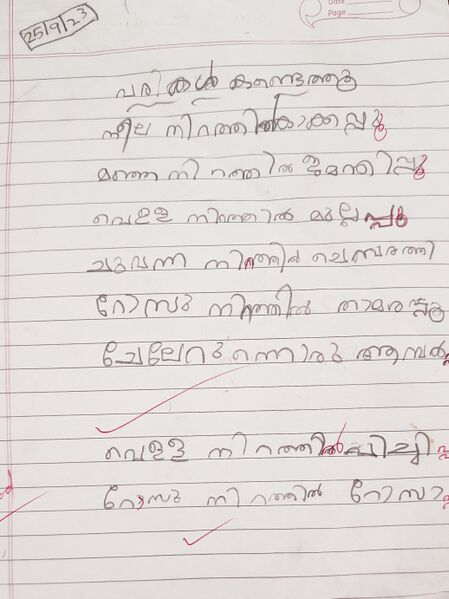 25/9/23
Date
Page
വരികൾ കണ്ടെത്തൂ
നീല നിറത്തിൽ കാക്കപ്പൂ
മഞ്ഞ നിറത്തിൽ ജമന്തിപ്പൂ
വെള്ള നിറത്തിൽ മുല്ലപ്പൂ
ചുവന്ന നിറത്തിൽ ചെമ്പരത്തി
റോസു നിറത്തിൽ താമരപ്പൂ
ചേലേറുന്നൊരു ആമ്പൽ
വെള്ള നിറത്തിൽ പിച്ചി
റോസു നിറത്തിൽ റോസാ